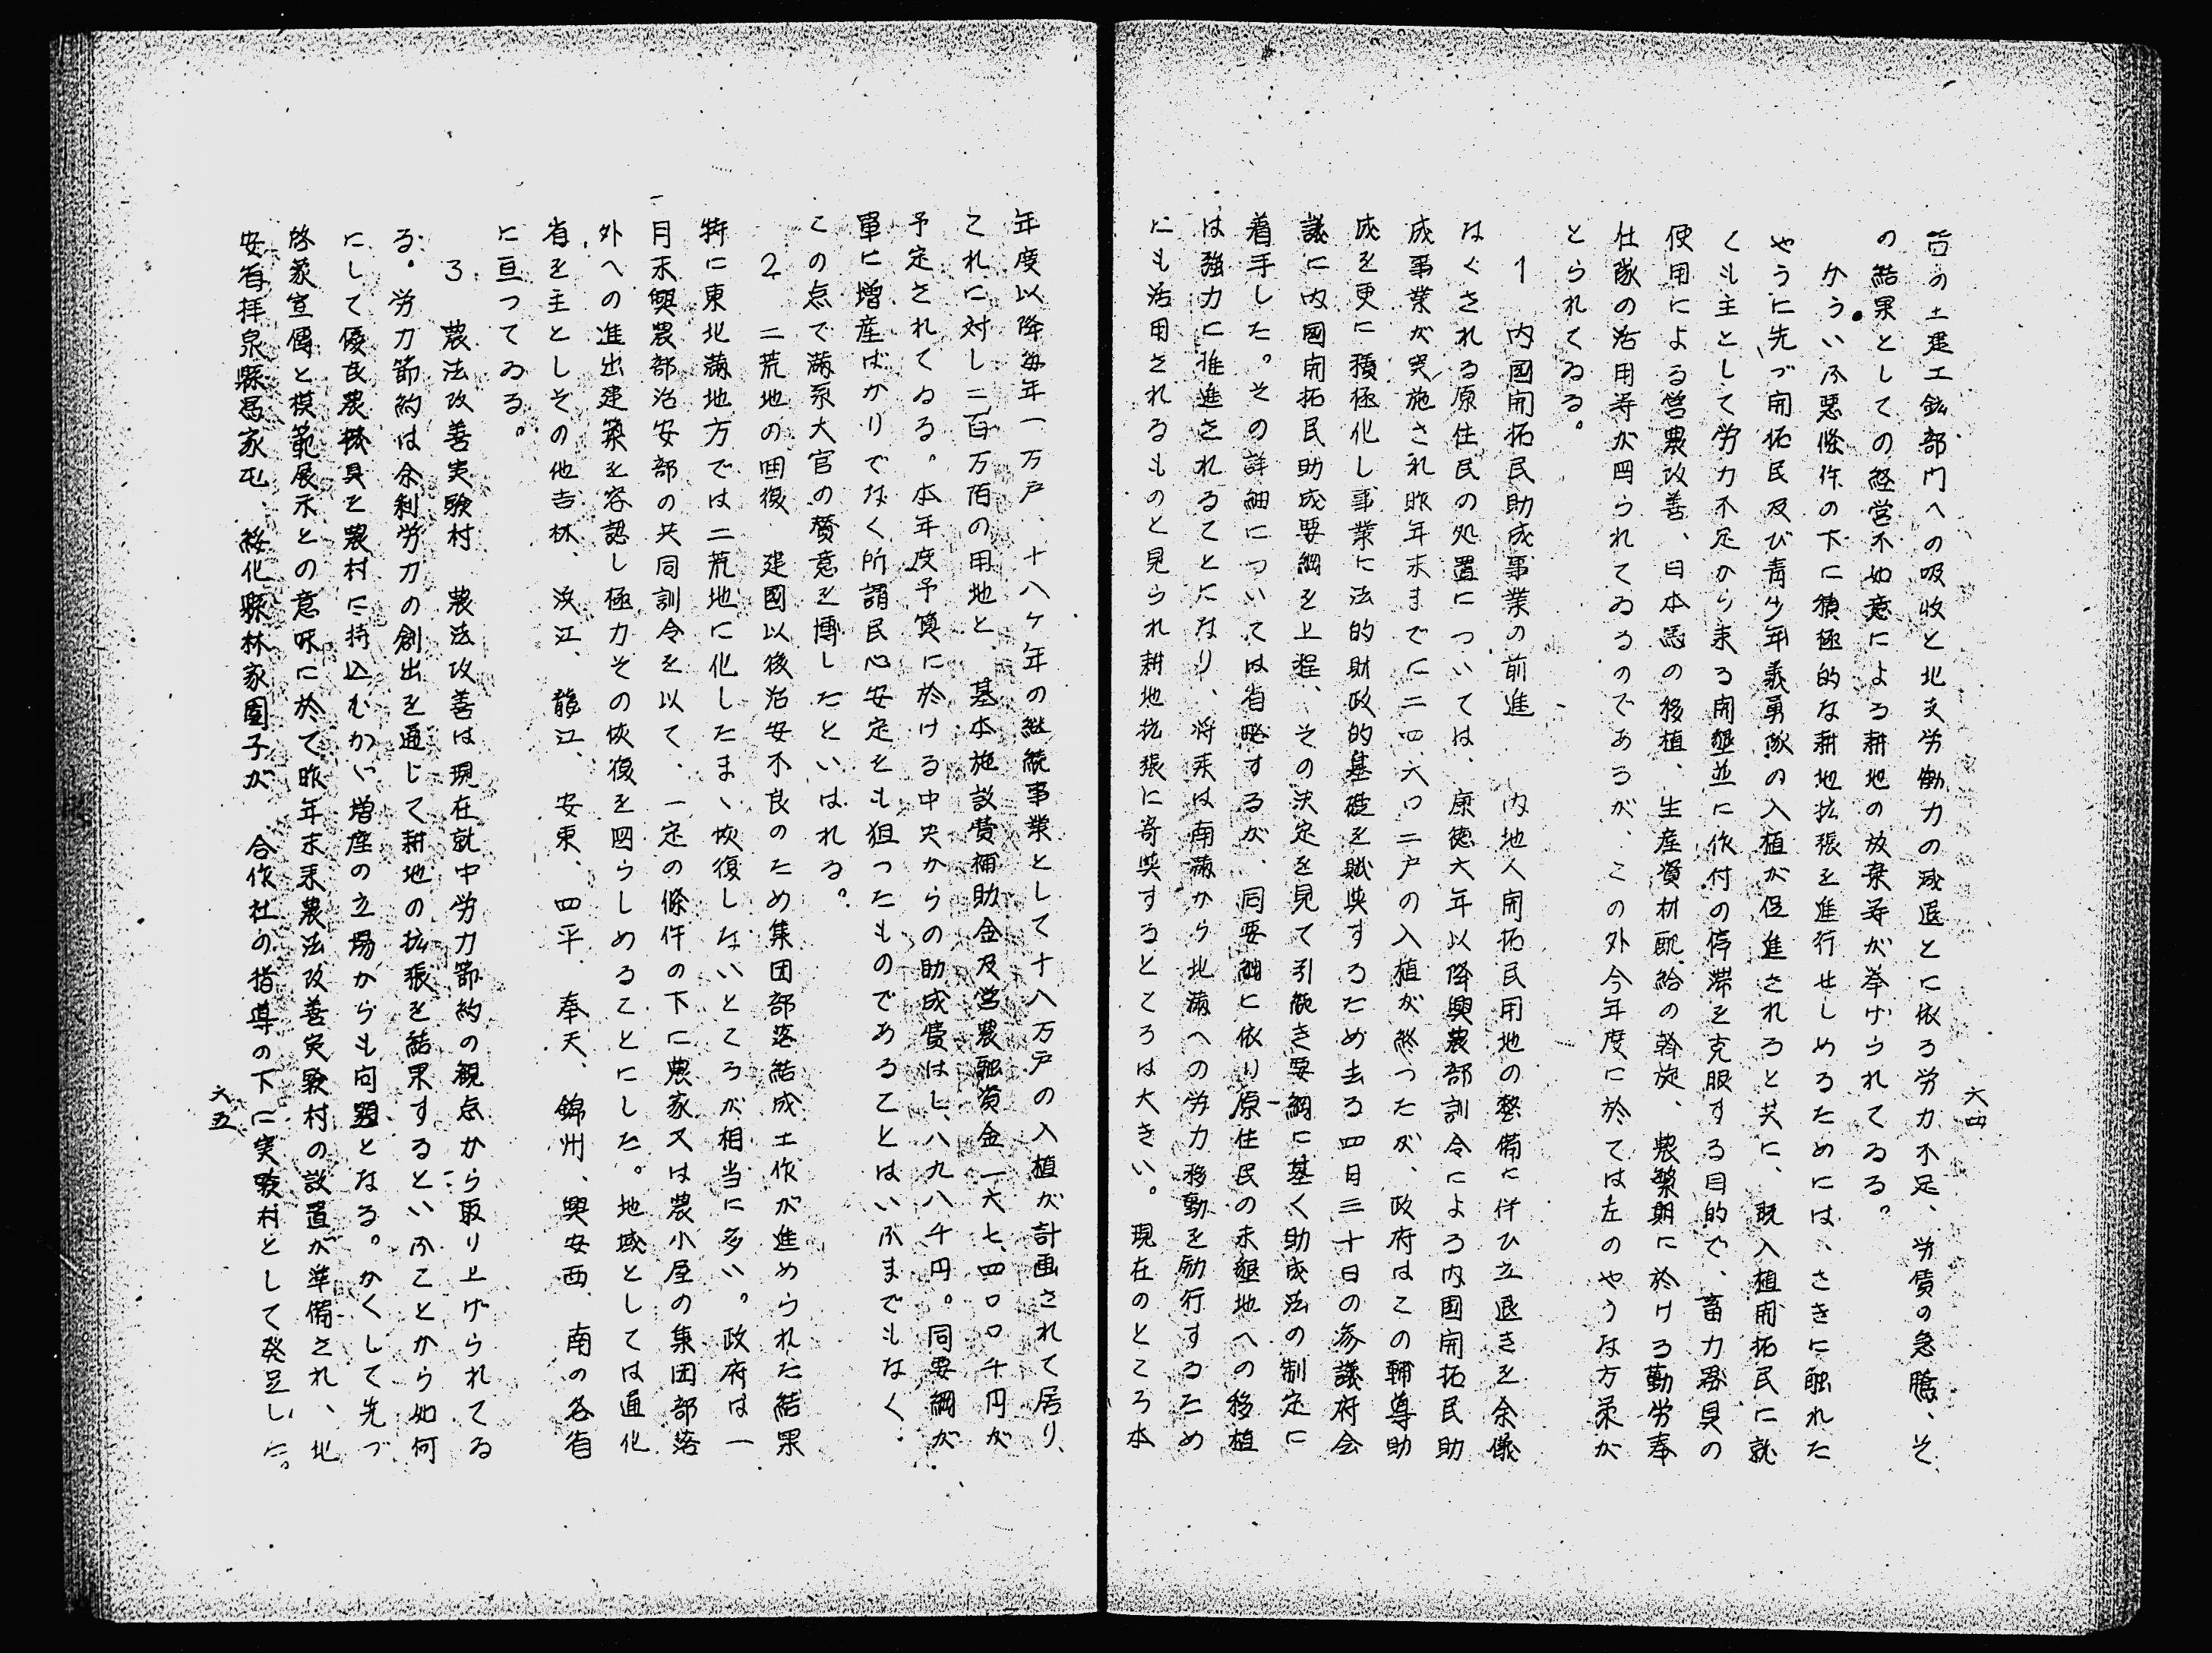 六四
台の土建工鉱部門への吸收と北支労働力の減退とに依る労力不足、労賃の急騰、そ
の結果としての経営不如意による耕地の放棄等が挙げられてゐる。
かういふ悪條件の下に積極的な耕地拡張を進行せしめるためには、さきに触れた
やうに先づ開拓民及び青少年義勇隊の入植が促進されると共に、既入植開拓民に就
くも主として労力不足から来る開墾並に作付の停滞を克服する目的で、畜力器具の
使用による営農改善、日本馬の移植、生産資材配給の斡旋、農繁期に於ける勤労奉
仕隊の活用等が図られてゐるのであるが、この外今年度に於ては左のやうな方策が
とられてゐる。
1 内國開拓民助成事業の前進 内地人開拓民用地の整備に伴ひ立退きを余儀
なくされる原住民の処置については、康徳六年以降興農部訓令による内国開拓民助
成事業が実施され昨年末までに二四六〇二戸の入植が終つたが、政府はこの輔導助
成を更に積極化し事業に法的財政的基礎を賦与するため去る四月三十日の参議府会
議に内國開拓民助成要綱を上程、その決定を見て引続き要綱に基く助成法の制定に
着手した。その詳細については省略するが、同要綱に依り原住民の未墾地への移植
は強力に推進されることになり、将来は南満から北満への労力移動を励行するため
にも活用されるものと見られ耕地拡張に寄與するところは大きい。現在のところ本
年度以降毎年一万戸、十八ケ年の継続事業として十八万戸の入植が計画されて居り、
これに対し二百万陌の用地と、基本施設費補助金及営農融資金一六七、四〇〇千円が
予定されてゐる。本年度予算に於ける中央からの助成費は七、八九八千円。同要綱が
單に増産ばかりでなく所謂民心安定をも狙つたものであることはいふまでもなく、
この点で満系大官の賛意を博したといはれる。
2 二荒地の囬復 建國以後治安不良のため集団部落結成工作が進められた結果
特に東北満地方では二荒地に化したまゝ恢復しないところが相当に多い。政府は一
月末興農部治安部の共同訓令を以て、一定の條件の下に農家又は農小屋の集団部落
外への進出建築を容認し極力その恢復を図らしめることにした。地域としては通化
省を主としその他吉林、浜江、龍江、安東、四平、奉天、錦州、興安西、南の各省
に亘つてゐる。
3 農法改善実験村 農法改善は現在就中労力節約の観点から取り上げられてゐ
る。労力節約は余剰労力の創出を通じて耕地の拡張を結果するといふことから如何
にして優良農機具を農村に持込むかゞ増産の立場からも问題となる。かくして先づ
啓蒙宣傳と模範展示との意味に於て昨年末来農法改善実験村の設置が準備され、北
安省拝泉縣馬家屯、綏化縣林家園子が 合作社の指導の下に実験村として発足した。
六五